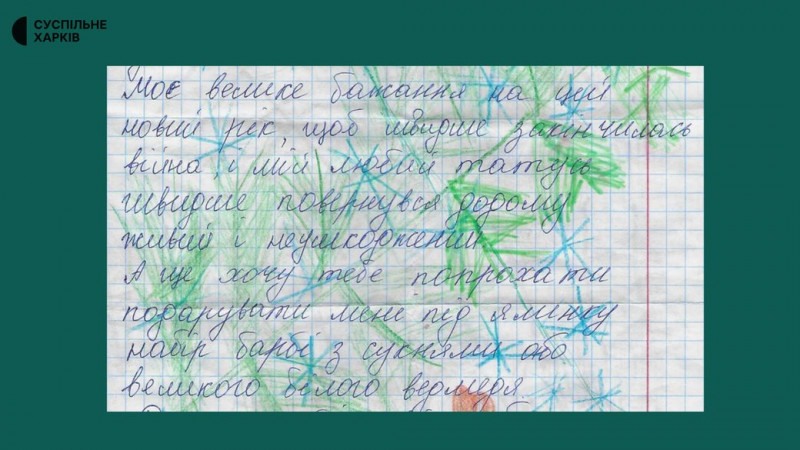 СУСПІЛЬНЕ
ХАРКІВ
Моє велике бажання на цей
новий рік, щоб швидше закінчилась
війна, і мій любий татусь
швидше повернувся додому
живий і неушкоджений.
А ще хочу тебе попрохати
подарувати мені під ялинку
набір барбі з сукнями або
великого білого ведмедя.